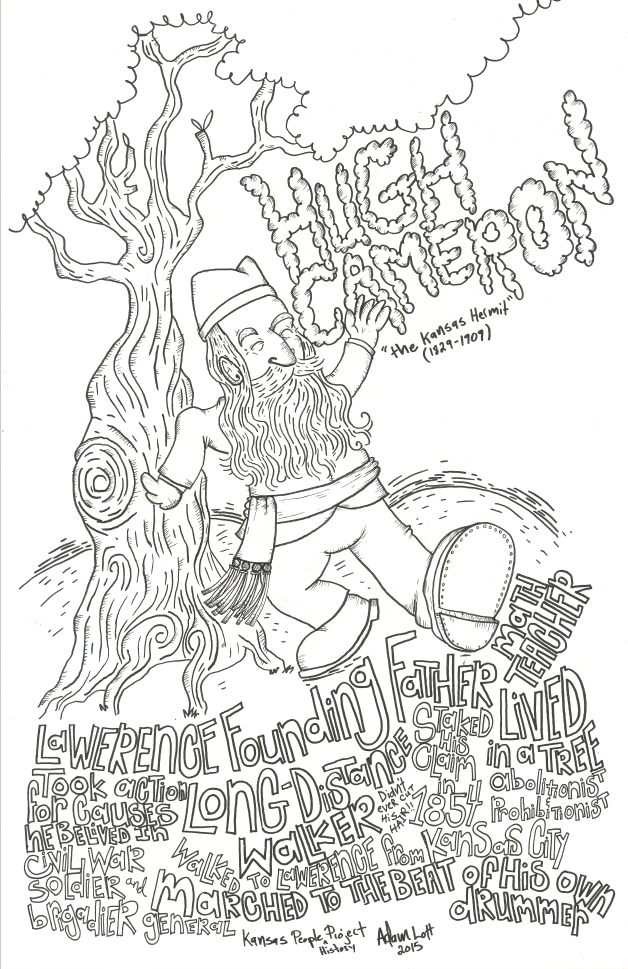 HUGH
CAMERON
"the Kansas Hermit"
(1829-1909)
MATH
TEACHER
LaWERENCE Founding FaTHER
STaKED
His
Claim
in
1854
LiVED
in a TREE
abolitionist
ProhibiTionisT
Took action
for Causes
HE BELiVED in
LONG-DisTaNCE
WaLKER
Didn't
ever CUT
His
HAIR!!
CiVil WaR
SoLDiER and
brigadier general
WaLKED TO LaWERENCE from KanSas CiTy
MaRCHED TO THE BEAT of His own
dRummER
Kansas People History Project
Adam Lott
2015